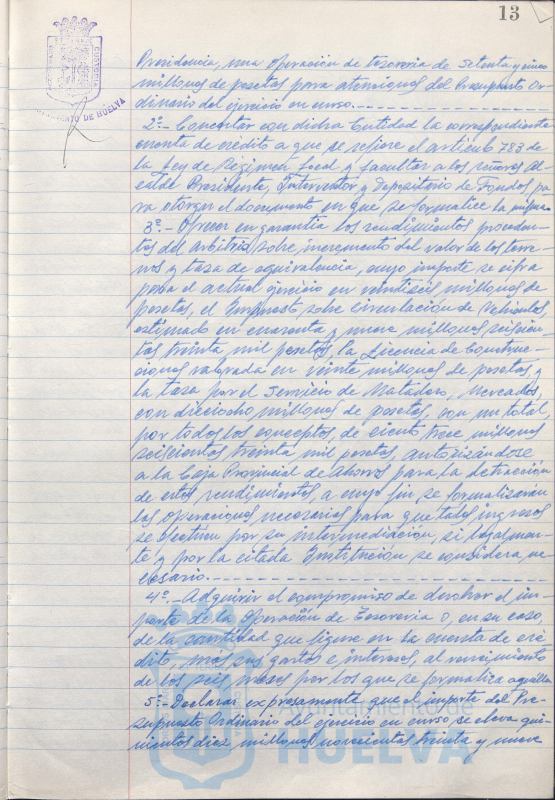 13
AYUNTAMIENTO DE HUELVA
Presidencia, una operación de tesorería de setenta y cinco
millones de pesetas para atenciones del Presupuesto Or-
dinario del ejercicio en curso.
2º.- Concertar con dicha Entidad la correspondiente
cuenta de crédito a que se refiere el artículo 783 de
la Ley de Régimen Local y facultar a los señores Al-
calde Presidente, Interventor y Depositario de Fondos pa-
ra otorgar el documento en que se formalice la misma.
3º.- Ofrecer en garantía los rendimientos proceden-
tes del arbitrio sobre incremento del valor de los terre-
nos y tasa de equivalencia, cuyo importe se cifra
para el actual ejercicio en veintiséis millones de
pesetas, el Impuesto sobre circulación de vehículos,
estimado en cuarenta y nueve millones seiscien-
tas treinta mil pesetas, la Licencia de Construc-
ciones valorada en veinte millones de pesetas, y
la tasa por el Servicio de Matadero, Mercados,
con dieciocho millones de pesetas, con un total,
por todos los conceptos, de ciento trece millones
seiscientas treinta mil pesetas, autorizándose
a la Caja Provincial de Ahorros para la detracción
de estos rendimientos, a cuyo fin se formalizarán
las operaciones necesarias para que tales ingresos
se efectúen por su intermediación, si legalmen-
te y por la citada Institución se considera ne-
cesario.
4º.- Adquirir el compromiso de devolver el im-
porte de la Operación de Tesorería o, en su caso,
de la cantidad que figure en la cuenta de cré-
dito, más sus gastos e intereses, al vencimiento
de los seis meses por los que se formaliza aquélla.
5º.- Declarar expresamente que el importe del Pre-
supuesto Ordinario del ejercicio en curso se eleva qui-
nientos diez millones novecientas treinta y nueve
Ayuntamiento de
HUELVA